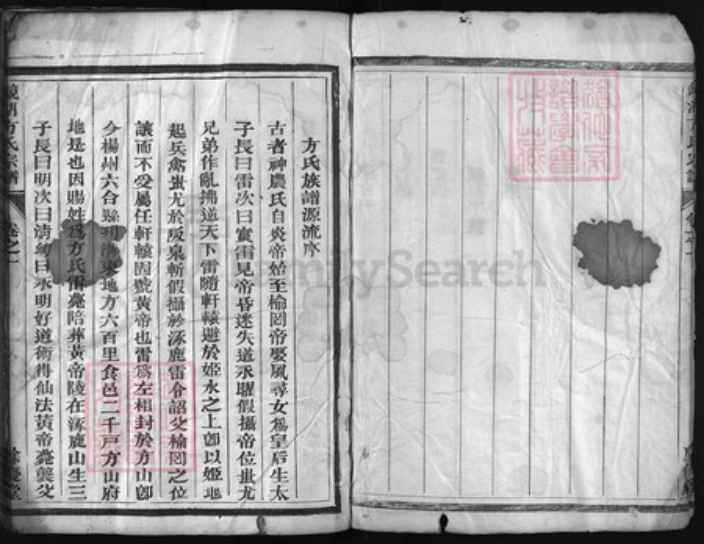 方氏族譜源流序
古者神農氏自炎帝始至榆罔帝娶風尋女爲皇后生太
子長曰雷次曰實雷見帝昏迷失道永曜假攝帝位蚩尤
兄弟作亂拂道天下雷隨軒轅避於姬水之上卽以姬地
起兵禽蚩尤於阪泉斬假攝於涿鹿雷令詔父榆罔之位
讓而不受屬任軒轅因號黃帝也雷爲左相封於方山卽
今楊州六合縣
地方六百里食邑二千戸方山府
地是也因賜姓爲方氏雷薨陪葬黃帝陵在涿鹿山生三
子長曰明次曰清幼曰永明好道術得仙法黃帝薨襲父
鏡湖方氏宗譜
卷之一
餘慶堂
FamilySearch